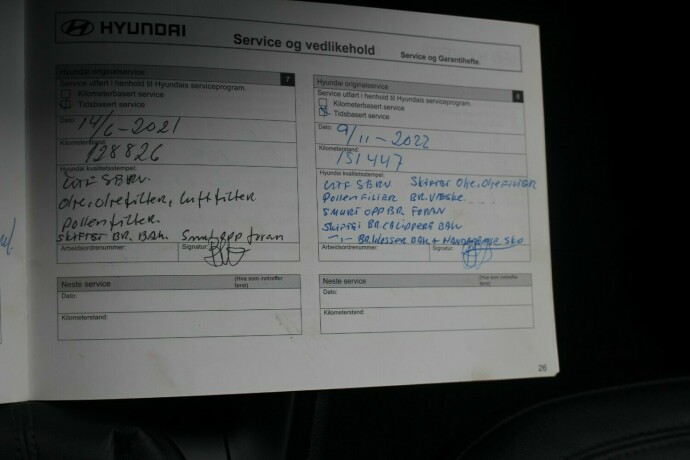 HYUNDAI
Service og vedlikehold
Service og Garantihefte.
Hyundai originalservice
7
Service utført i henhold til Hyundais serviceprogram.
Kilometerbasert service
Tidsbasert service
Dato:
14/6-2021
Kilometerstand:
128826
Hyundai kvalitetsstempel:
SERV.
Olje, oljefilter, luftfilter
Pollenfilter.
SKIFTET BR. BAK. Smurt opp foran
Arbeidsordrenummer:
Signatur:
Neste service
(Hva som inntreffer først)
Dato:
Kilometerstand:
Hyundai originalservice
8
Service utført i henhold til Hyundais serviceprogram.
Kilometerbasert service
Tidsbasert service
Dato:
9/11-2022
Kilometerstand:
151447
Hyundai kvalitetsstempel:
SERV SKIFTET OLJE, OLJEFILTER
POLLENFILTER BR. VÆSKE
SMURT OPP BR. FORAN
SKIFTET BR. CALIPPERE BAK
BAK + SKO
Arbeidsordrenummer:
Signatur:
Neste service
(Hva som inntreffer først)
Dato:
Kilometerstand:
26